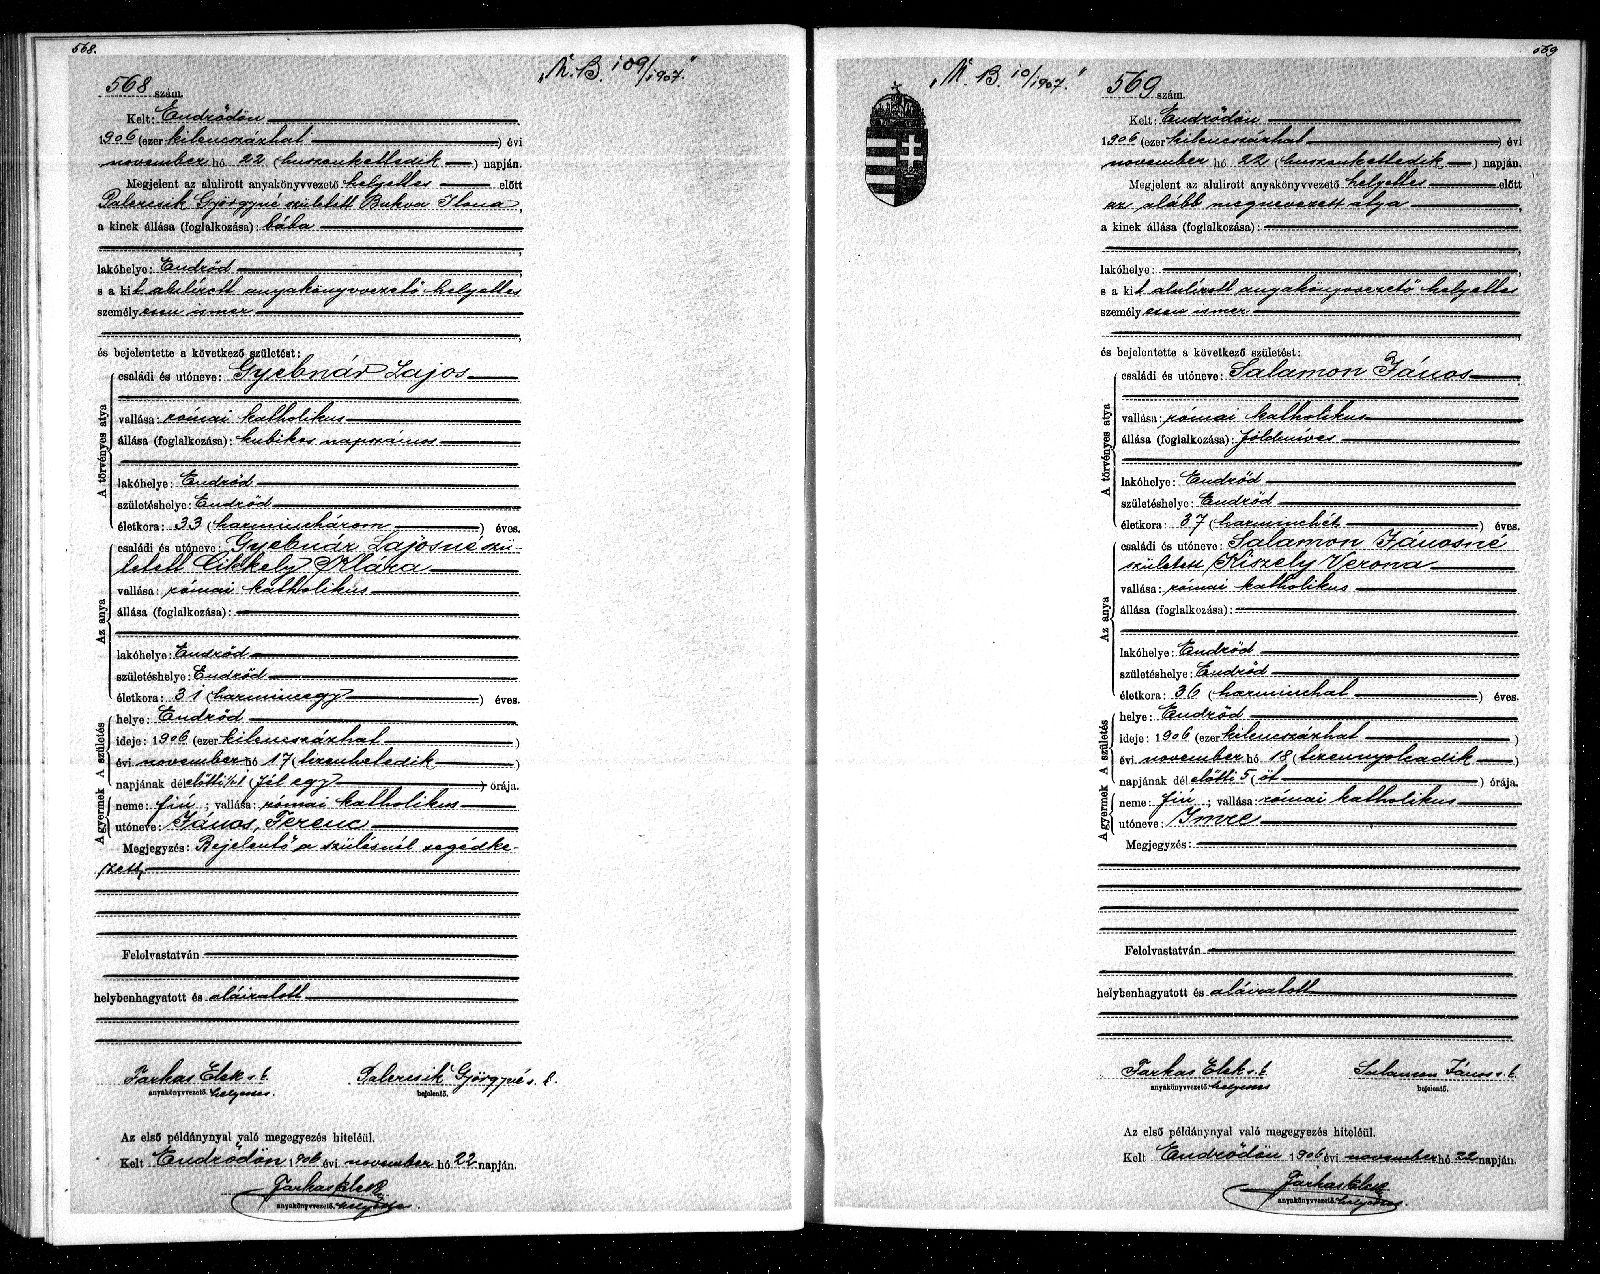 568.
„N. B. 109/1907."
568 szám.
Kelt: Endrődön
1906 (ezer kilencszázhat) évi
november hó 22 (huszonkettedik) napján.
Megjelent az alulirott anyakönyvvezető helyettes előtt
Palercsik Györgyné született Bukva Ilona,
a kinek állása (foglalkozása): bába
lakóhelye: Endrőd
s a kit alulírott anyakönyvvezető helyettes
személyesen ismer
és bejelentette a következő születést:
A törvényes atya
családi és utóneve: Gyebnár Lajos
vallása: római katholikus
állása (foglalkozása): kubikos napszámos
lakóhelye: Endrőd
születéshelye: Endrőd
életkora: 33 (harminchárom) éves.
Az anya
családi és utóneve: Gyebnár Lajosné szü-
letett Cikkely Klára
vallása: római katholikus
állása (foglalkozása):
lakóhelye: Endrőd
születéshelye: Endrőd
életkora: 31 (harmincegy) éves.
A születés
helye: Endrőd
ideje: 1906 (ezer kilencszázhat)
évi november hó 17 (tizenhetedik)
napjának délelőtti ½1 (fél egy) órája.
A gyermek
neme: fiú; vallása: római katholikus
utóneve: János, Ferenc
Megjegyzés: Bejelentő a szülésnél segédke-
zett,
Felolvastatván
helybenhagyatott és aláiratott
Farkas Elek s. k. Palercsik Györgyné s. k.
anyakönyvvezető helyettes. bejelentő.
Az első példánynyal való megegyezés hiteléül.
Kelt Endrődön 1906 évi november hó 22 napján.
Farkas Elek
anyakönyvvezető helyettes.
569
„N. B. 10/1907."
569 szám.
Kelt: Endrődön
1906 (ezer kilencszázhat) évi
november hó 22 (huszonkettedik) napján.
Megjelent az alulirott anyakönyvvezető helyettes előtt
az alább megnevezett atya
a kinek állása (foglalkozása):
lakóhelye:
s a kit alulírott anyakönyvvezető helyettes
személyesen ismer
és bejelentette a következő születést:
A törvényes atya
családi és utóneve: Salamon János
vallása: római katholikus
állása (foglalkozása): földmíves
lakóhelye: Endrőd
születéshelye: Endrőd
életkora: 37 (harminchét) éves.
Az anya
családi és utóneve: Salamon Jánosné
született Kiszely Verona
vallása: római katholikus
állása (foglalkozása):
lakóhelye: Endrőd
születéshelye: Endrőd
életkora: 36 (harminchat) éves.
A születés
helye: Endrőd
ideje: 1906 (ezer kilencszázhat)
évi november hó 18 (tizennyolcadik)
napjának délelőtti 5 (öt) órája.
A gyermek
neme: fiú; vallása: római katholikus
utóneve: Imre
Megjegyzés:
Felolvastatván
helybenhagyatott és aláiratott
Farkas Elek s. k. Salamon János s. k.
anyakönyvvezető helyettes bejelentő.
Az első példánynyal való megegyezés hiteléül.
Kelt Endrődön 1906 évi november hó 22 napján.
Farkas Elek
anyakönyvvezető helyettes.